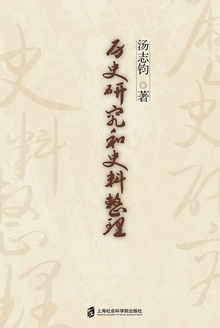 汤志钧
著
历史研究和史料整理
上海社会科学院出版社